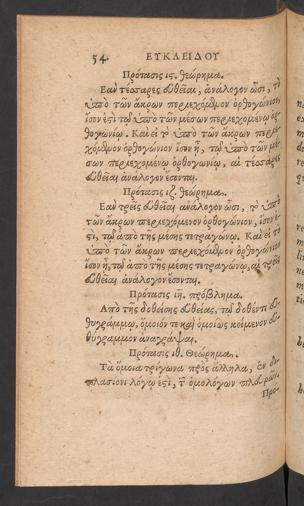 54. ΕΥΚΛΕΙΔΟΥ
Πρότασις ις. θεώρημα.
Εαν τέσσαρες εὐθεῖαι, ἀνάλογον ὦσι, τὸ
ὑπὸ τῶν ἄκρων περιεχόμενον ὀρθογώνιον,
ἴσον ἐστὶ τῷ ὑπὸ τῶν μέσων περιεχομένῳ ὀρ-
θογωνίῳ. Καὶ εἰ τὸ ὑπὸ τῶν ἄκρων περιε-
χόμενον ὀρθογώνιον ἴσον ᾖ, τῷ ὑπὸ τῶν μέ-
σων περιεχομένῳ ὀρθογωνίῳ, αἱ τέσσαρες
εὐθεῖαι ἀνάλογον ἔσονται.
Πρότασις ιζ. θεώρημα.
Εαν τρεῖς εὐθεῖαι ἀνάλογον ὦσι, τὸ ὑπὸ
τῶν ἄκρων περιεχόμενον ὀρθογώνιον, ἴσον ἐ-
στι, τῷ ἀπὸ τῆς μέσης τετραγώνῳ. Καὶ εἰ τὸ
ὑπὸ τῶν ἄκρων περιεχόμενον ὀρθογώνιον
ἴσον ᾖ, τῷ ἀπὸ τῆς μέσης τετραγώνῳ, αἱ τρεῖς
εὐθεῖαι ἀνάλογον ἔσονται.
Πρότασις ιη. πρόβλημα.
Απὸ τῆς δοθείσης εὐθείας, τῷ δοθέντι εὐ-
θυγράμμῳ, ὅμοιόν τε καὶ ὁμοίως κείμενον εὐ-
θύγραμμον ἀναγράψαι.
Πρότασις ιθ. Θεώρημα.
Τὰ ὅμοια τρίγωνα πρὸς ἄλληλα, ἐν δι-
πλασίονι λόγῳ ἐστὶ, τῶν ὁμολόγων πλευρῶν.
Πρό-